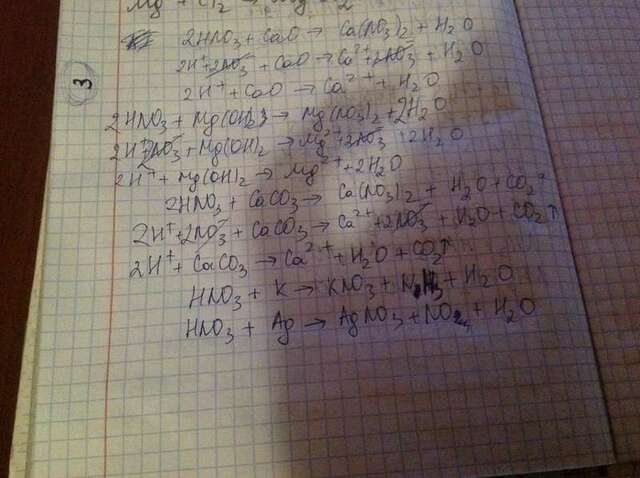 Mg + Cl₂ →
2HNO₃ + CaO → Ca(NO₃)₂ + H₂O
2H⁺ + 2NO₃⁻ + CaO → Ca²⁺ + 2NO₃⁻ + H₂O
3
2H⁺ + CaO → Ca²⁺ + H₂O
2HNO₃ + Mg(OH)₂ → Mg(NO₃)₂ + 2H₂O
2H⁺ 2NO₃⁻ + Mg(OH)₂ → Mg²⁺ + 2NO₃⁻ + 2H₂O
2H⁺ + Mg(OH)₂ → Mg²⁺ + 2H₂O
2HNO₃ + CaCO₃ → Ca(NO₃)₂ + H₂O + CO₂↑
2H⁺ + 2NO₃⁻ + CaCO₃ → Ca²⁺ + 2NO₃⁻ + H₂O + CO₂↑
2H⁺ + CaCO₃ → Ca²⁺ + H₂O + CO₂↑
HNO₃ + K → KNO₃ + + H₂O
HNO₃ + Ag → AgNO₃ + NO₂ + H₂O